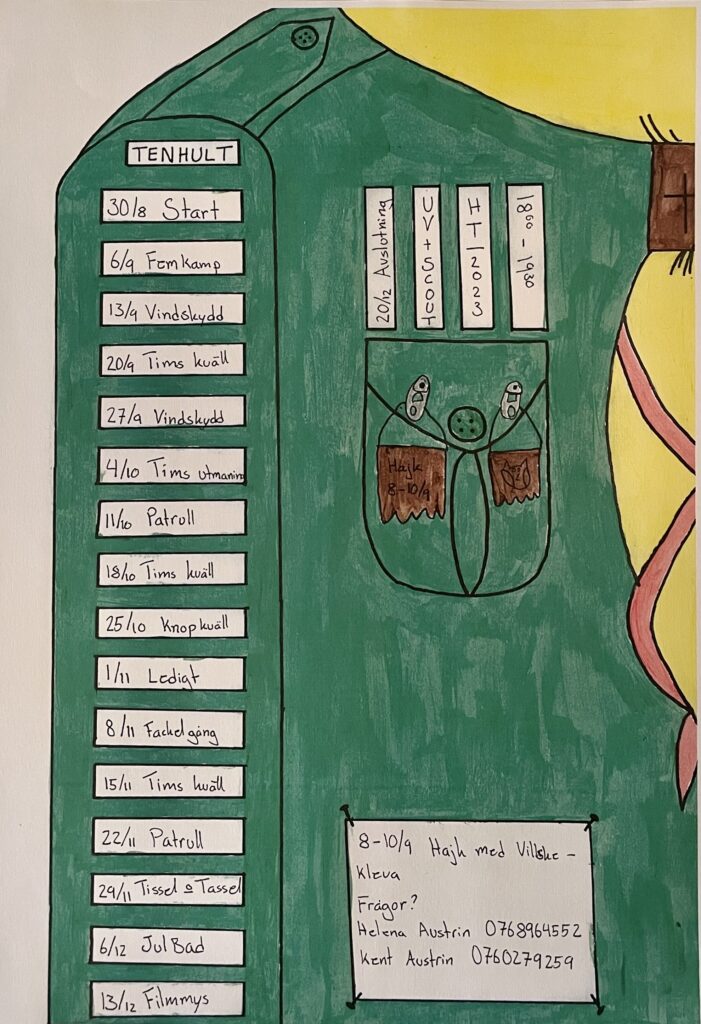 TENHULT
30/8 Start
6/9 Femkamp
13/9 Vindskydd
20/9 Tims kväll
27/9 Vindskydd
4/10 Tims utmaning
11/10 Patrull
18/10 Tims kväll
25/10 Knopkväll
1/11 Ledigt
8/11 Fackelgång
15/11 Tims kväll
22/11 Patrull
29/11 Tissel o Tassel
6/12 JulBad
13/12 Filmmys
20/12 Avslutning
UV+SCOUT
HT 2023
18°° - 19³⁰
Hajk
8-10/9
8-10/9 Hajk med Villske-
Kleva
Frågor?
Helena Austrin 0768964552
Kent Austrin 0760279259